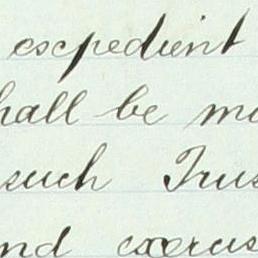 expedient
hall be mo
such Trus
nd exercis